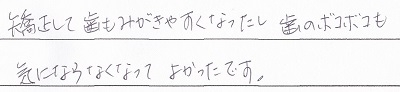 矯正して歯もみがきやすくなったし 歯のボコボコも
気にならなくなって よかったです。